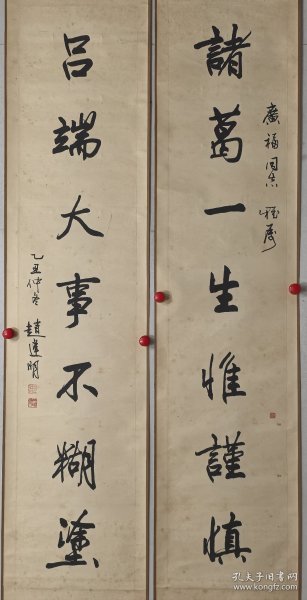 諸葛一生惟謹慎
廣福同志雅屬
吕端大事不糊塗
乙丑仲冬 趙蓮明
孔夫子旧书网